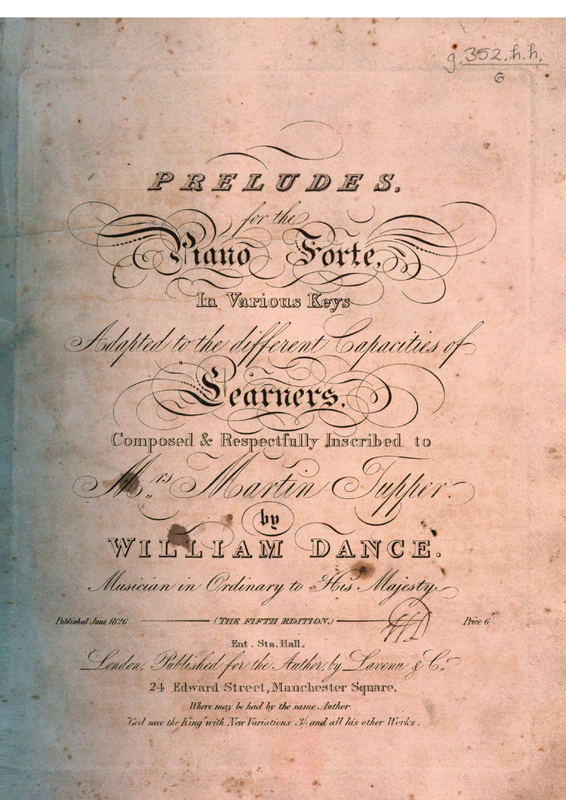 g.352.h.h.
6
PRELUDES.
for the
Piano Forte,
In Various Keys
Adapted to the different Capacities of
Learners.
Composed & Respectfully Inscribed to
Mrs Martin Tupper.
by
WILLIAM DANCE.
Musician in Ordinary to His Majesty
Published June 1826 (THE FIFTH EDITION.) Price 6/
Ent. Sta. Hall.
London, Published for the Author, by Lavenu & Co.
24 Edward Street, Manchester Square.
Where may be had by the same Author
"God save the King" with New Variations 3/- and all his other Works.